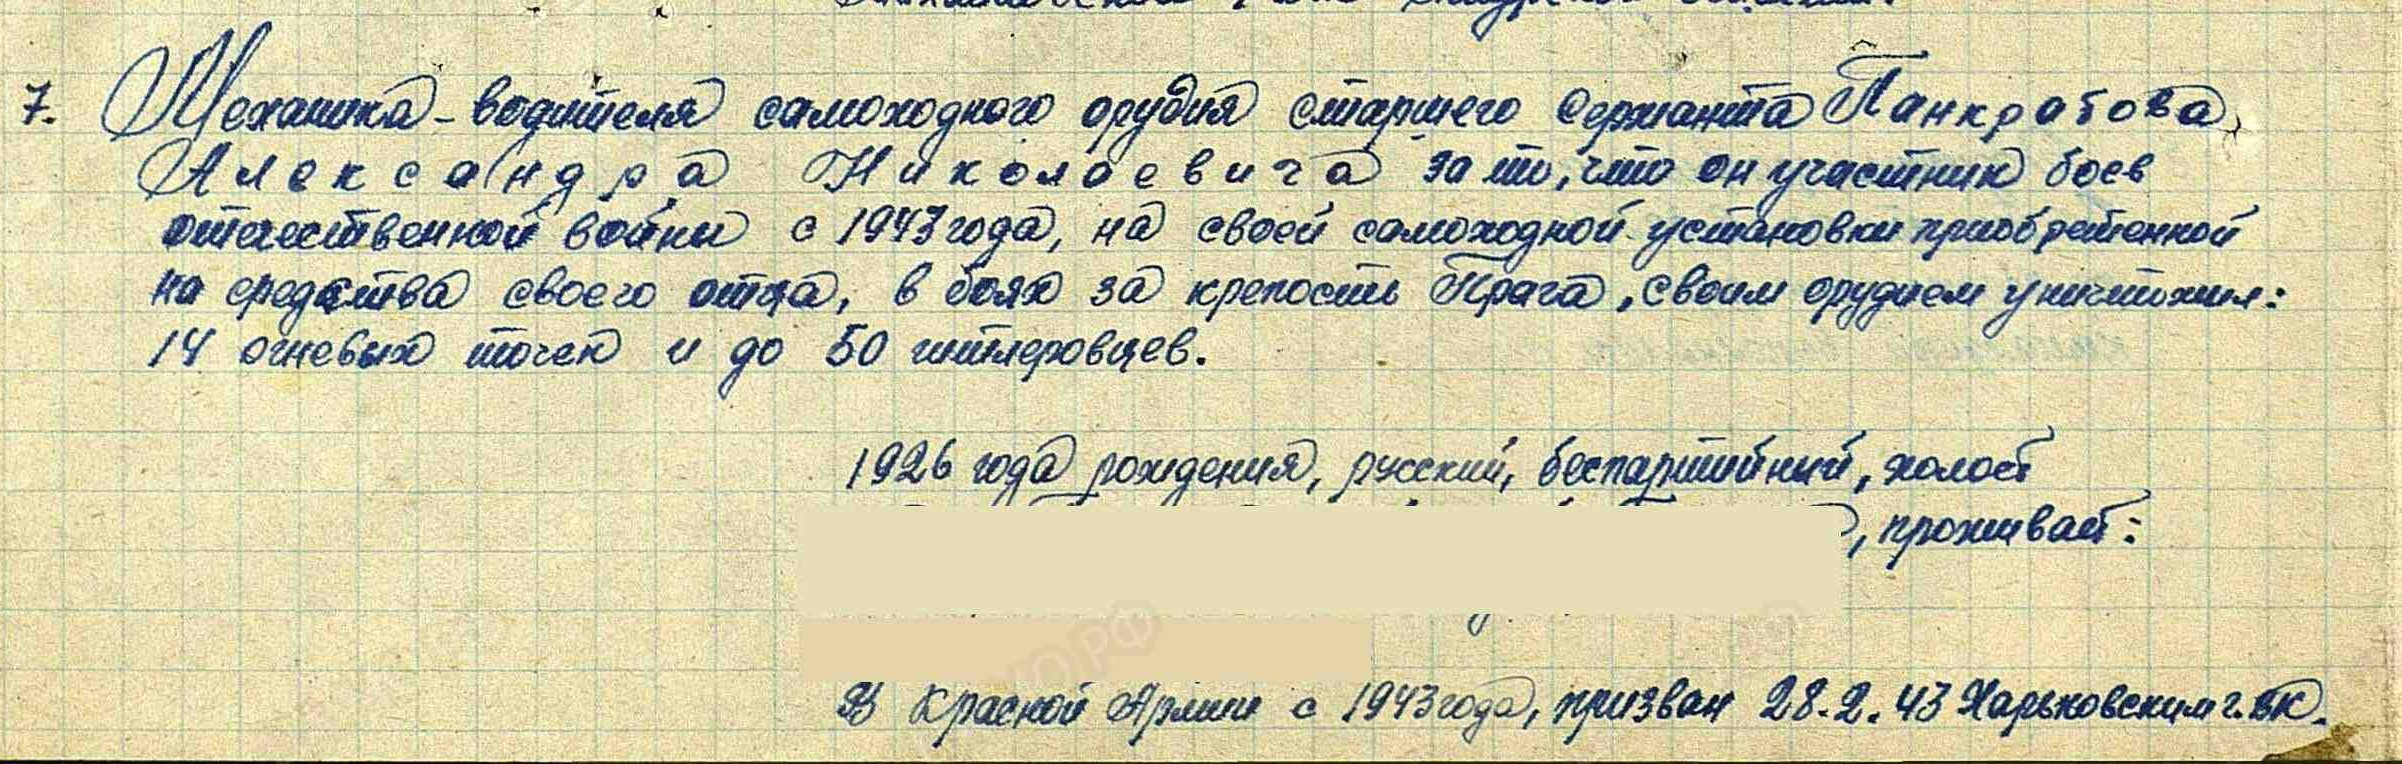 7. Механика-водителя самоходного орудия старшего сержанта Панкратова,
Александра Николаевича за то, что он участник боев
отечественной войны с 1943 года, на своей самоходной установки приобретенной
на средства своего отца, в боях за крепость Прага, своим орудием уничтожил:
14 огневых точек и до 50 гитлеровцев.
1926 года рождения, русский, беспартийный, холост
, проживает:
В Красной Армии с 1943 года, призван 28.2.43 Харьковским г.вк.